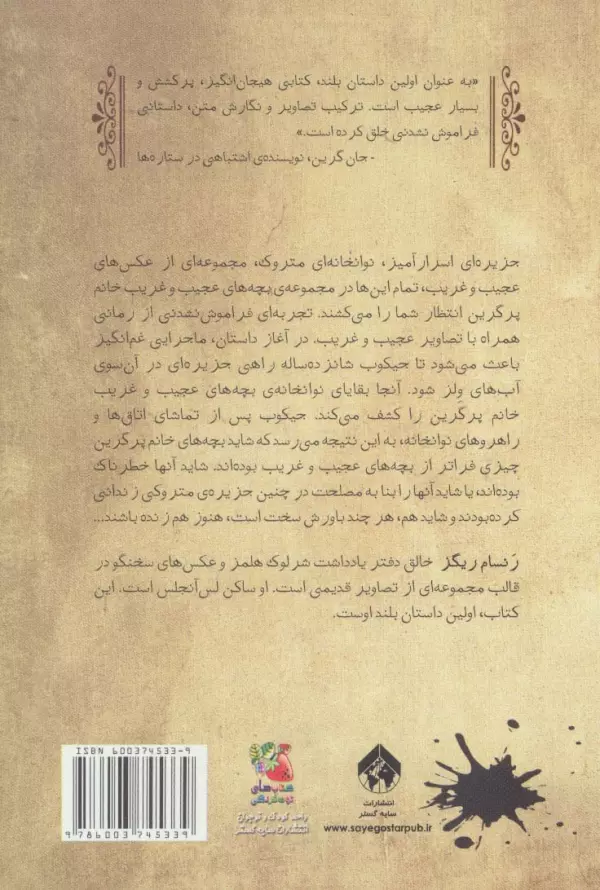 «به عنوان اولین داستان بلند، کتابی هیجان‌انگیز، پرکشش و
بسیار عجیب است. ترکیب تصاویر و نگارش متن، داستانی
فراموش نشدنی خلق کرده است.»
- جان گرین، نویسنده‌ی اشتباهی در ستاره‌ها
جزیره‌ای اسرارآمیز، نوانخانه‌ای متروک، مجموعه‌ای از عکس‌های
عجیب و غریب، تمام این‌ها در مجموعه‌ی بچه‌های عجیب و غریب خانم
پرگرین انتظار شما را می‌کشند. تجربه‌ای فراموش‌نشدنی از رمانی
همراه با تصاویر عجیب و غریب. در آغاز داستان، ماجرایی غم‌انگیز
باعث می‌شود تا جیکوب شانزده‌ساله راهی جزیره‌ای در آن‌سوی
آب‌های وِلز شود. آنجا بقایای نوانخانه‌ی بچه‌های عجیب و غریب
خانم پرگرین را کشف می‌کند. جیکوب پس از تماشای اتاق‌ها و
راهروهای نوانخانه، به این نتیجه می‌رسد که شاید بچه‌های خانم پرگرین
چیزی فراتر از بچه‌های عجیب و غریب بوده‌اند. شاید آنها خطرناک
بوده‌اند، یا شاید آنها را بنا به مصلحت در چنین جزیره‌ی متروکی زندانی
کرده بودند و شاید هم، هر چند باورش سخت است، هنوز هم زنده باشند...
رَنسام ریگز خالق دفتر یادداشت شرلوک هلمز و عکس‌های سخنگو در
قالب مجموعه‌ای از تصاویر قدیمی است. او ساکن لس‌آنجلس است. این
کتاب، اولین داستان بلند اوست.
ISBN 600374533-9
9 786003 745339
کتاب‌های
توت‌فرنگی
واحد کودک و نوجوان
انتشارات سایه گستر
انتشارات
سایه گستر
www.sayegostarpub.ir